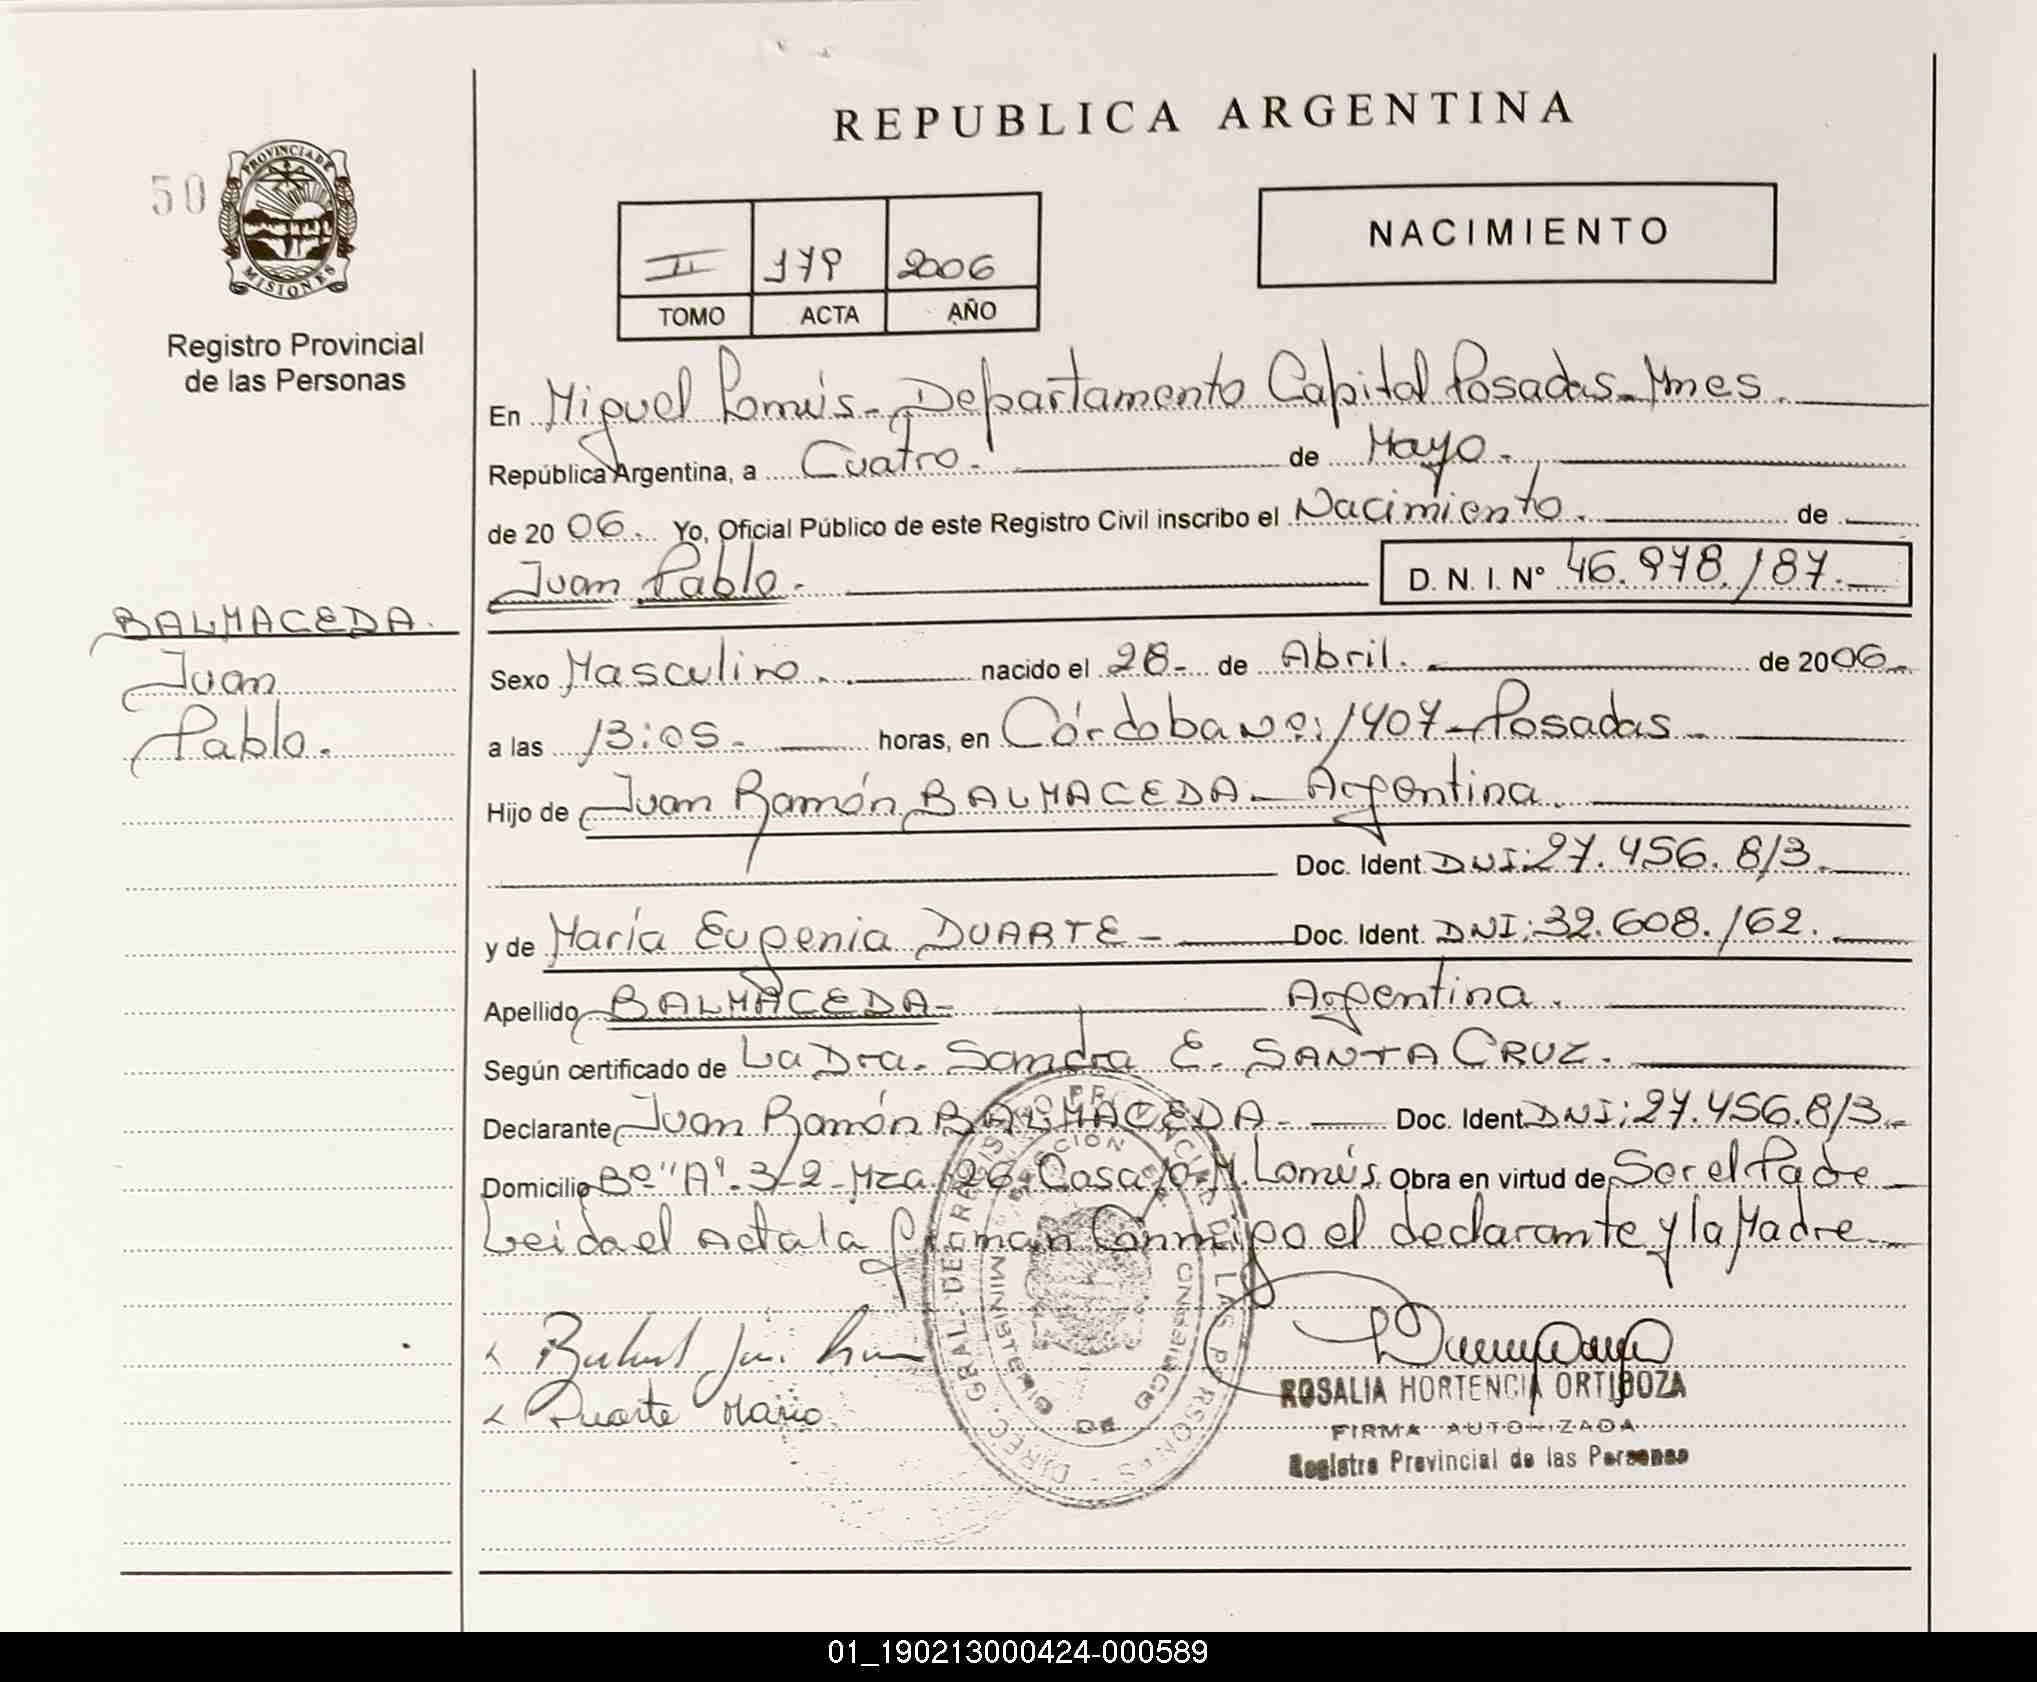 REPUBLICA ARGENTINA
50
PROVINCIA DE
MISIONES
Registro Provincial
de las Personas
NACIMIENTO
II 179 2006
TOMO ACTA AÑO
En Miguel Lanús - Departamento Capital Posadas - Mnes.
República Argentina, a Cuatro. de Mayo.
de 2006. Yo, Oficial Público de este Registro Civil inscribo el Nacimiento. de
Juan Pablo. D. N. I. N° 46.978.187.
BALMACEDA.
Juan
Pablo.
Sexo Masculino. nacido el 28- de Abril. de 2006.
a las 13:05. horas, en Córdoba Nº: 1407 - Posadas.
Hijo de Juan Ramón BALMACEDA - Argentina.
Doc. Ident. DNI: 27.456.813.
y de María Eugenia DUARTE - Doc. Ident. DNI: 32.608.162.
Apellido BALMACEDA - Argentina.
Según certificado de La Dra. Sandra E. SANTA CRUZ.
Declarante Juan Ramón BALMACEDA - Doc. Ident. DNI: 27.456.813.
Domicilio Bº "A" 3-2 - Mza. 126. Casa 10 - M. Lanús. Obra en virtud de Ser el Padre
Leida el Acta la firman Conmigo el declarante y la Madre
Duarte Maria
ROSALIA HORTENCIA ORTIBOZA
FIRMA AUTORIZADA
Registro Provincial de las Personas
01_190213000424-000589